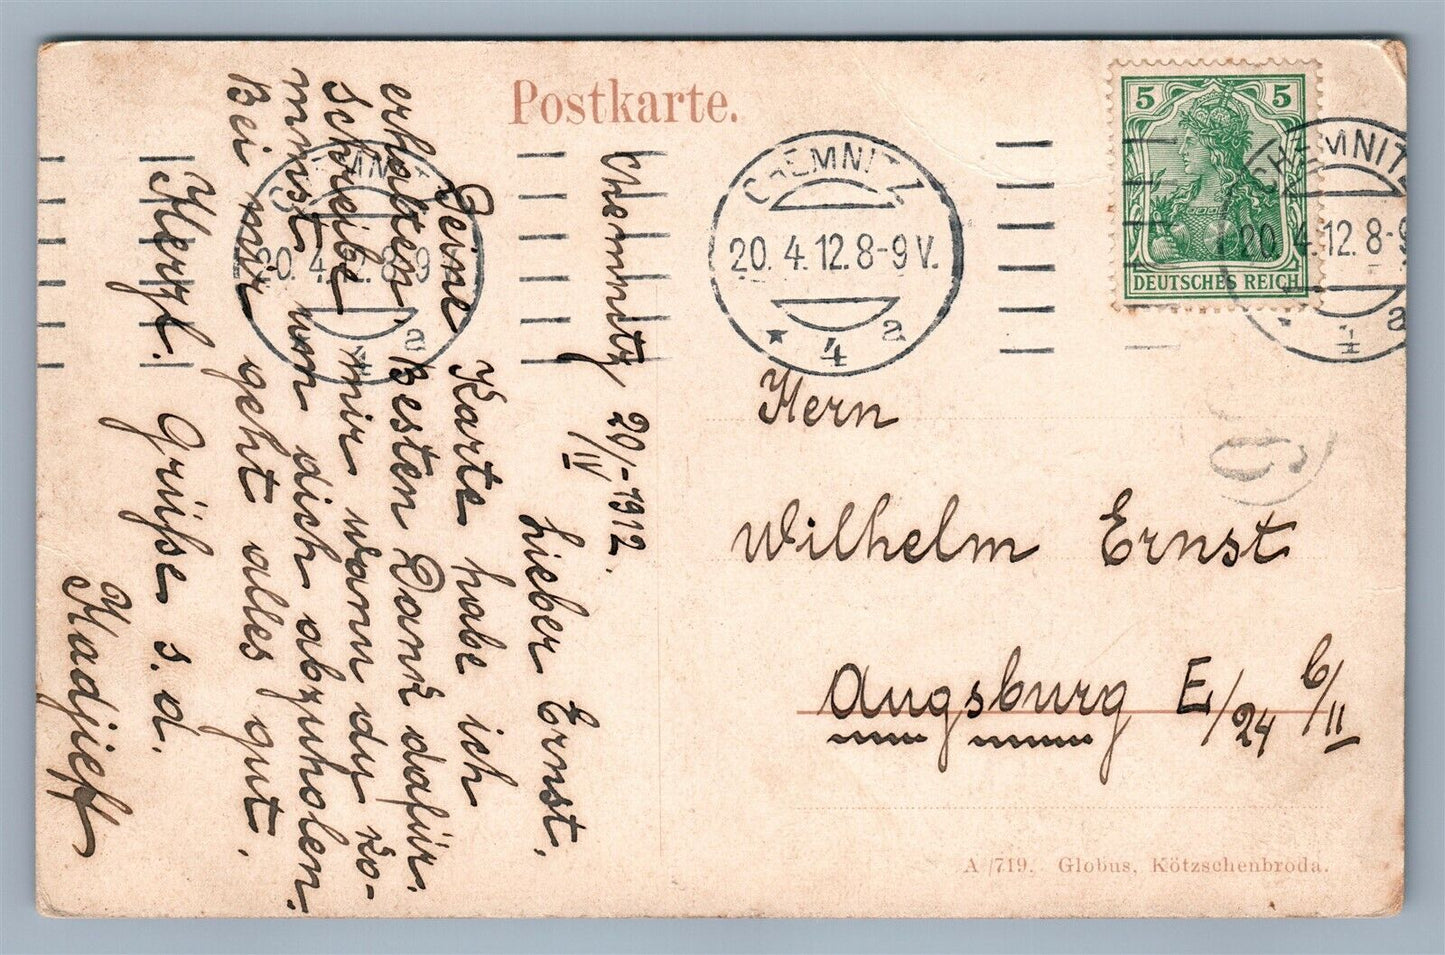 Postkarte.
5 5
DEUTSCHES REICH
CHEMNITZ
20. 4. 12. 8-9 V.
* 4 a
CHEMNITZ
20. 4. 12. 8-9
4 a
20. 4. 12. 8-9
a
Chemnitz 20/IV-1912.
Lieber Ernst.
Deine Karte habe ich
erhalten. Besten Dank dafür.
Schreibe mir wann du ko-
mmst um dich abzuholen.
Bei mir geht alles gut.
Herzl. Grüsse s. d.
Hadjieff
Hern
Wilhelm Ernst
Augsburg E/24 6/II
A/719. Globus, Kötzschenbroda.